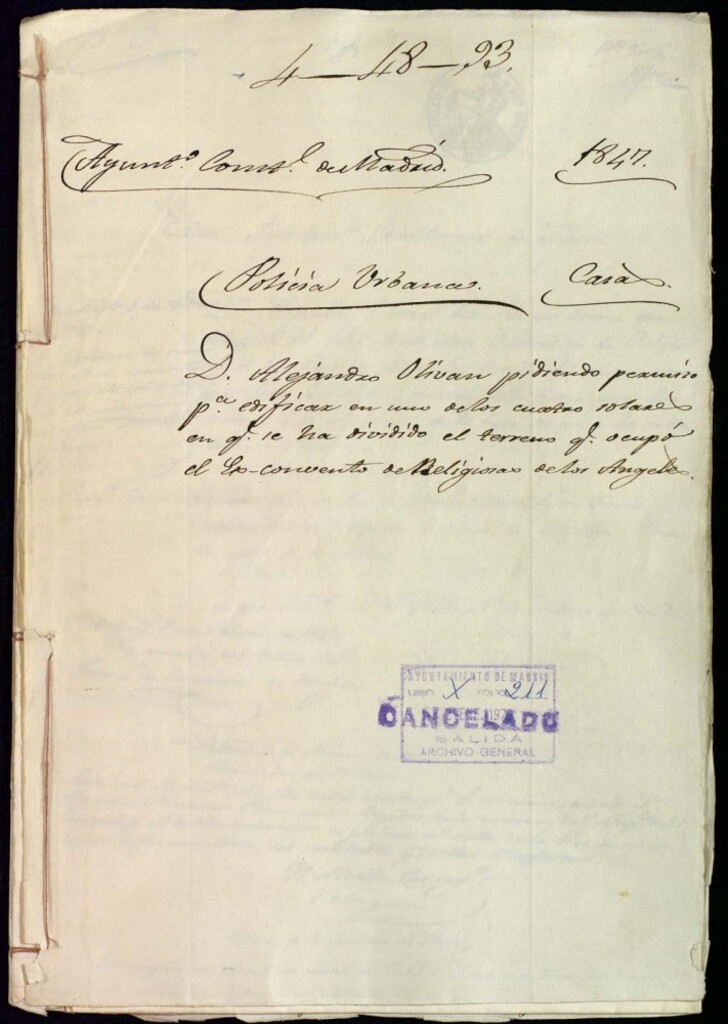 4-48-93.
Ayuntº. Constl. de Madrid. 1847.
Policia Urbana. Casas.
D. Alejandro Olivan pidiendo permiso
pª edificar en uno de los cuatro solares
en q. se ha dividido el terreno q. ocupó
el Ex-convento de Religiosas de los Angeles.
AYUNTAMIENTO DE MADRID
LIBRO X FOLIO 211
CANCELADO
SALIDA
ARCHIVO GENERAL